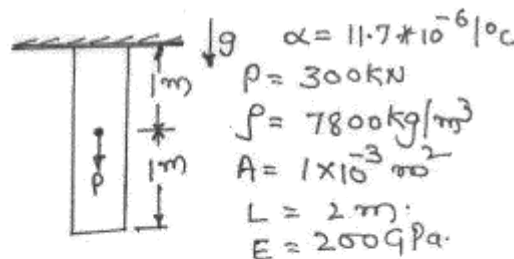 g
α = 11.7*10⁻⁶/°C
1m
P = 300KN
ρ = 7800kg/m³
P
1m
A = 1×10⁻³ m²
L = 2m.
E = 200GPa.